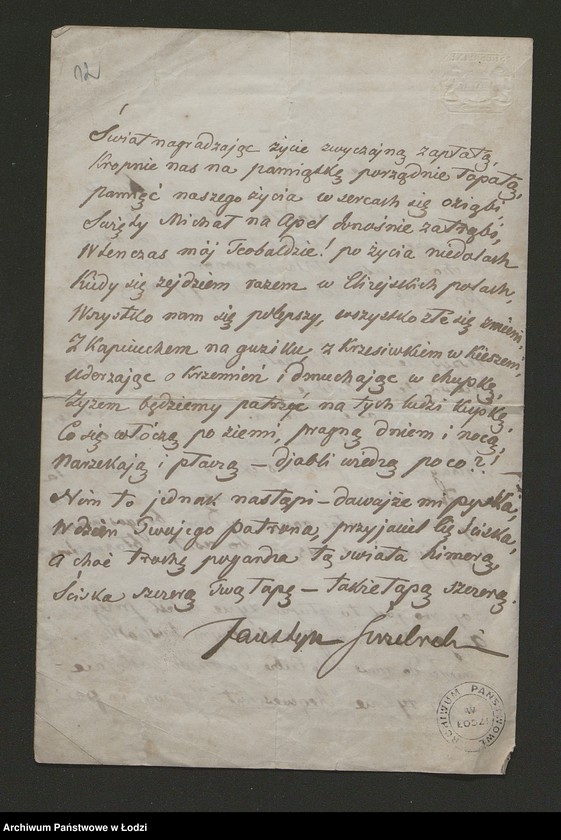 12
Świat nagradzając życie zwyczajną zapłatą,
Kropnie nas na pamiątkę porządnie łopatą,
pamięć naszego życia w sercach się oziębi,
Święty Michał na Apel donośnie zatrąbi,
Wtenczas mój Teobaldzie! po życia niedolach
Kiedy się zejdziem razem w Elizejskich polach,
Wszystko nam się polepszy, wszystko złe się zmieni,
Z Kapciuchem na guziku, z Krzesiwkiem w Kieszeni,
Uderzając o Krzemień i dmuchając w chupkę,
Łyżem będziemy patrzeć na tych ludzi kupkę,
Co się włóczą po ziemi, pragną dniem i nocą,
Narzekają i płaczą – djabli wiedzą po co?!
Nim to jednak nastąpi – dawajże mi pyska,
W dzień Twojego patrona, przyjaciel Cię ściska,
A choć trochę pogardza tą świata himerą,
Ściska szczerą Twą łapę – także łapą szczerą.
Faustyn
ARCHIWUM PAŃSTWOWE
W
ŁODZI
Archiwum Państwowe w Łodzi